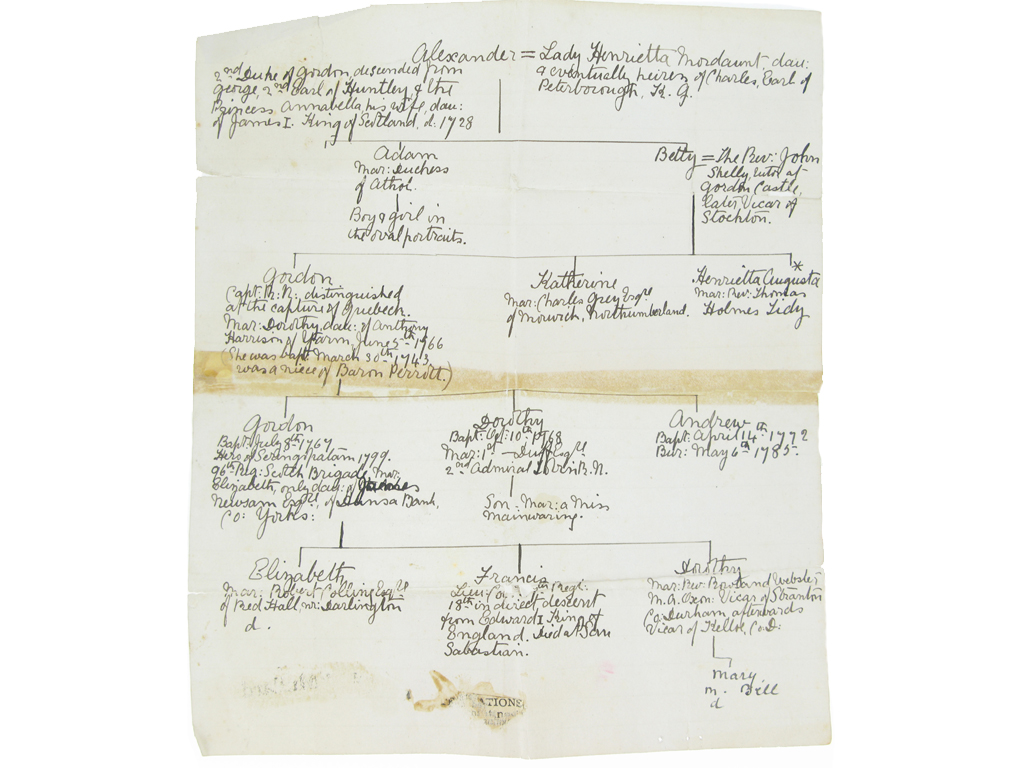 Alexander = Lady Henrietta Mordaunt, dau:
& eventually heiress of Charles, Earl of
Peterborough, K. G.
2nd Duke of Gordon, descended from
George, 2nd Earl of Huntley, & the
Princess Annabella, his wife, dau:
of James I. King of Scotland, d: 1728
Adam
Mar: Duchess
of Athol.
Boy & girl in
the oval portraits.
Betty = The Rev: John
Shelly, tutor at
Gordon Castle,
later Vicar of
Stockton.
Gordon
Capt: R. N., distinguished
at the capture of Quebech.
Mar: Dorothy, dau: of Anthony
Harrison of Yarm, June 5th 1766
(She was bapt: March 30th 1743
was a niece of Baron Perrott.)
Katherine
Mar: Charles Grey Esqre
of Morwich, Northumberland.
*
Henrietta Augusta
Mar: Rev: Thomas
Holmes Tidy
Gordon
Bapt: July 8th 1767
Hero of Seringapatam 1799.
96th Reg: Scotch Brigade, Mar:
Elizabeth, only dau: of James
Newsam Esqre, of Bank,
Co: Yorks:
Dorothy
Bapt: 10th 1768
Mar: 1st — Duff Esqre
2nd Admiral R. N.
Son - Mar: a Miss
Mainwaring.
Andrew
Bapt: April 14th 1772
Bur: May 6th 1785.
Elizabeth
Mar: Robert Colling Esqre
of Red Hall, nr: Darlington
d.
Francis
Lieu: th Regt:
18th in direct descent
from Edward I King of
England. Died at San
Sabastian.
Dorothy
Mar: Rev: Rowland Webster
M. A. Oxon: Vicar of Stranton
Co: Durham, afterwards
Vicar of Kelloe, Co: D:
Mary
m. Bill
d
ATIONS